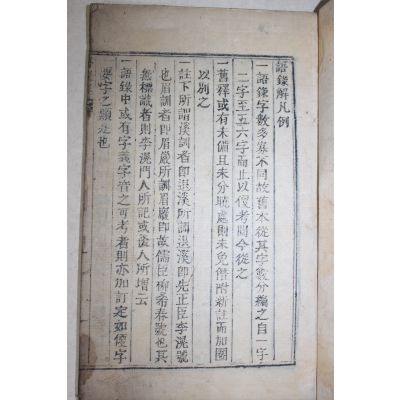 語錄解凡例
一語錄字數多寡不同故舊本從其字數分編之自一字
二字至五六字而止以便考閱今從之
一舊釋或有未備且未分曉處則未免僭附新註而加圈
以別之
一註下所謂溪訓者即退溪所訓退溪即先正臣李滉號
也眉訓者即眉巖所訓眉巖即故儒臣柳希春號也其
無標識者則李滉門人所記或後人所增云
一語錄中或有字義字音之可考者則亦加訂定如便字
要字之類是也